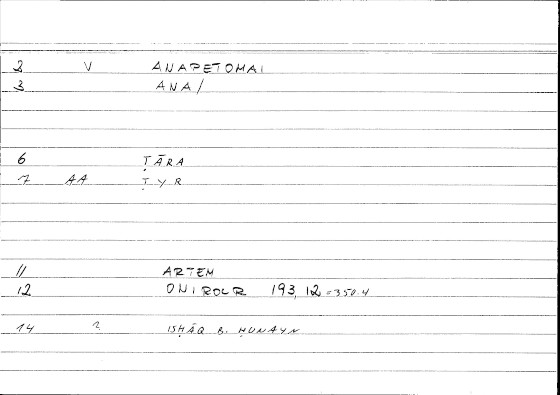 2 V ANAPETOMAI
3 ANA/
6 ṬĀRA
7 AA ṬYR
11 ARTEM
12 ONIROCR 193, 12 = 350.4
14 2 ISḤĀQ B. ḤUNAYN